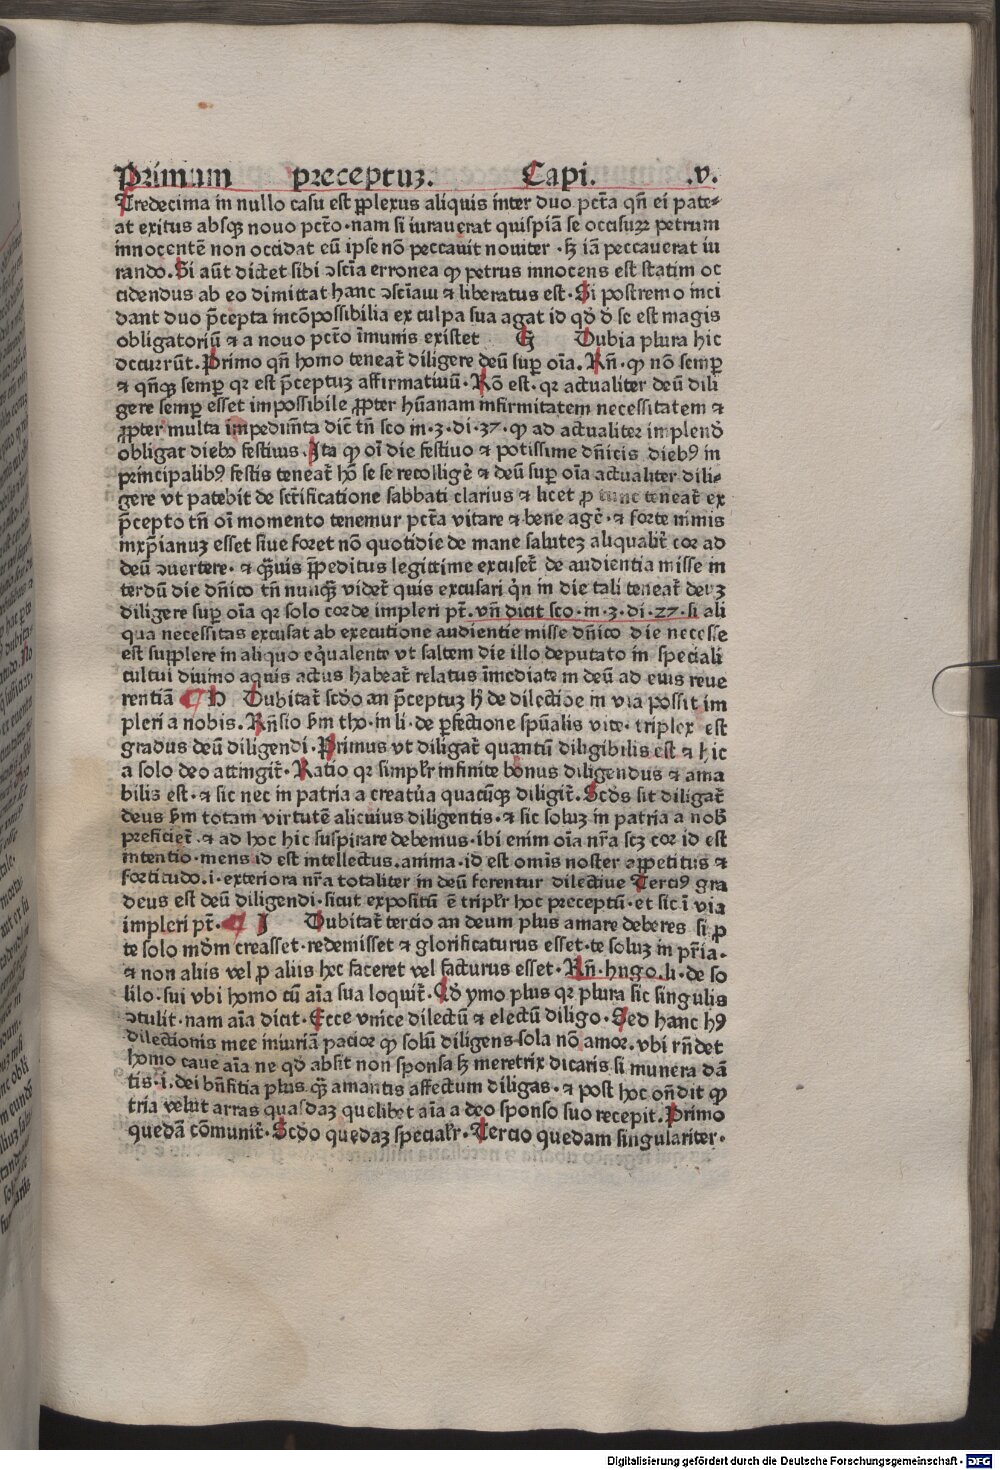 Primum preceptuꝫ. Capi. .v.
Tredecima in nullo casu est ꝑplexus aliquis inter duo pct̄a qn̄ ei pate⸗
at exitus absqꝫ nouo pct̄o · nam si iurauerat quispiā se occisuꝝ petrum
innocentē non occidat eū ipse nō peccauit nouiter · sꝫ iā peccauerat iu
rando. Si aūt dictet sibi ꝯsciā erronea ꝙ petrus innocens est statim oc
cidendus ab eo dimittat hanc ꝯsciāꝫ ⁊ liberatus est · Si postremo inci
dant duo p̄cepta incōpossibilia ex culpa sua agat id qd̄ d̄ se est magis
obligatoriū ⁊ a nouo pct̄o īmunis existet G Dubia plura hic
occurrūt. Primo qn̄ homo teneat̄ diligere deū suꝑ oīa. Rn̄. ꝙ nō semꝑ
⁊ qn̄qꝫ semꝑ qꝛ est p̄ceptuꝫ affirmatiuū · Rō est · qꝛ actualiter deū dili
gere semꝑ esset impossibile ꝓpter hūanam infirmitatem necessitatem ⁊
ꝓpter multa impedim̄ta dic̄ tn̄ sco in · 3 · di · 37 · ꝙ ad actualiter implend̄
obligat diebꝫ festiuis. Ita ꝙ oī die festiuo ⁊ potissime dn̄icis diebꝰ in
principalibꝰ festis teneat̄ hō se se recollige᷑ ⁊ deū suꝑ oīa actualiter dili⸗
gere vt patebit de sct̄ificatione sabbati clarius ⁊ licet ꝓ tunc teneat̄ ex
p̄cepto tn̄ oī momento tenemur pct̄a vitare ⁊ bene age᷑ · ⁊ forte nimis
inxp̄ianuꝫ esset siue foret nō quotidie de mane saluteꝫ aliqualit̄ cor ad
deū ꝯuertere · ⁊ qꝫuis p̄peditus legittime excuset̄ de audientia misse in
terdū die dn̄ico tn̄ nunqꝫ videt̄ quis excusari qͥn in die tali teneat̄ deuꝫ
diligere suꝑ oīa qꝛ solo corde impleri pt̄. vn̄ dicit sco · in · 3 · di · 27 · si ali
qua necessitas excusat ab executione audientie misse dn̄ico die necesse
est supplere in aliquo eqͥualente vt saltem die illo deputato in speciali
cultui diuino aquis actus habeat̄ relatus īmediate in deū ad eius reue
rentiā ¶ H Dubitat̄ scd̄o an p̄ceptuꝫ h̄ de dilectiōe in via possit im
pleri a nobis. Rn̄sio ẜm tho · in li · de ꝑfectione spūalis vite · triplex est
gradus deū diligendi · Primus vt diligat̄ quantū diligibilis est ⁊ hic
a solo deo attingit̄ · Ratio qꝛ simpl'r infinite bonus diligendus ⁊ ama
bilis est · ⁊ sic nec in patria a creatu᷑a quacūqꝫ diligit̄. Scd̄s sit diligat̄
deus ẜm totam virtutē alicuius diligentis · ⁊ sic soluꝫ in patria a nob̄
preficiet̄ · ⁊ ad hoc hic suspirare debemus · ibi enim oīa nr̄a scꝫ cor id est
intentio · mens id est intellectus · anima · id est omīs noster appetitus ⁊
fortitudo · i · exteriora nr̄a totaliter in deū ferentur dilectiue Terciꝰ gra
deus est deū diligendi · sicut expositū ē tripl'r hoc preceptū · et sic ī via
impleri pt̄. ¶ I Dubitat̄ tercio an deum plus amare deberes si ꝓ
te solo md̄m creasset · redemisset ⁊ glorificaturus esset · te soluꝫ in pr̄ia ·
⁊ non aliis vel ꝓ aliis hec faceret vel facturus esset · Rn̄ · hugo. li · de so
lilo · sui vbi homo cū aīa sua loquit̄ · Qd̄ ymo plus qꝛ plura sic singulis
ꝯtulit · nam aīa dicit · Ecce vnice dilectū ⁊ electū diligo · Sed hanc hꝰ
dilectionis mee iniuriā patior ꝙ solū diligens sola nō amor. vbi rn̄det
homo caue aīa ne qd̄ absit non sponsa sꝫ meretrix dicaris si munera dā
tis · i · dei bn̄fitia plus qꝫ amantis affectum diligas · ⁊ post hoc on̄dit ꝙ
tria velut arras quasdaꝫ quelibet aīa a deo sponso suo recepit. Primo
quedā cōmunit̄ · Scd̄o quedaꝫ special'r · Tercio quedam singulariter ·
Digitalisierung gefördert durch die Deutsche Forschungsgemeinschaft · DFG